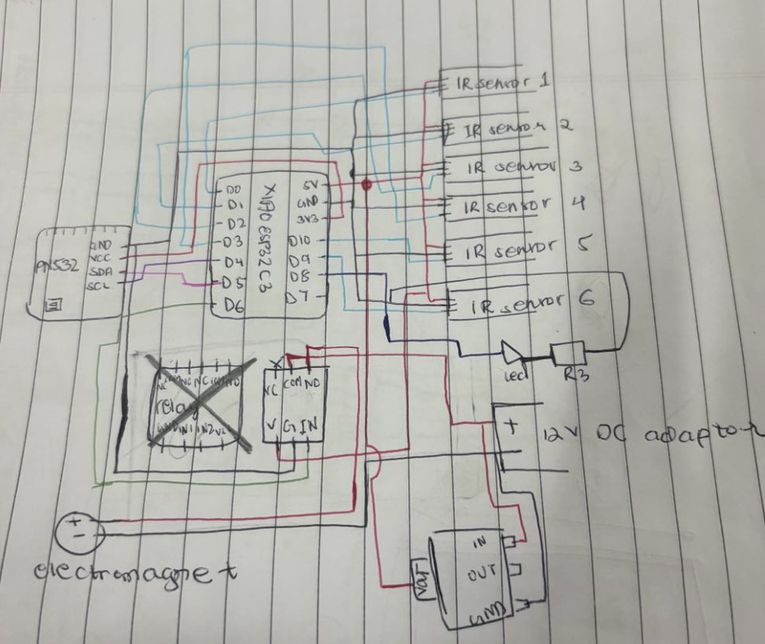 IR sensor 1
IR sensor 2
IR sensor 3
IR sensor 4
IR sensor 5
IR sensor 6
XIAO ESP32 C3
D0
D1
D2
D3
D4
D5
D6
5V
GND
3V3
D10
D9
D8
D7
PN532
GND
VCC
SDA
SCL
led
R3
relay
NC COM NO
V G IN
+
12V DC adaptor
+
-
electromagnet
IN
OUT
GND
Vout